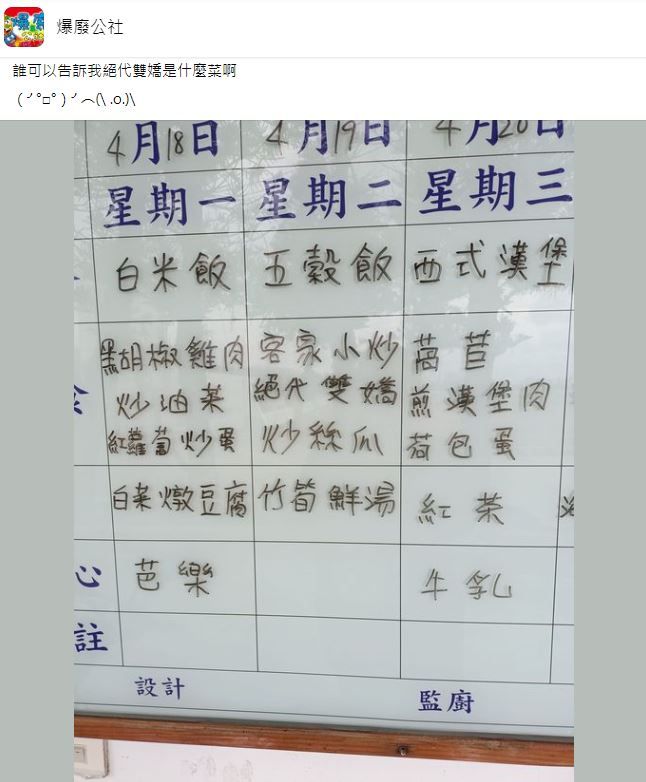 爆廢公社
誰可以告訴我絕代雙嬌是什麼菜啊
(╯°□°)╯︵(\ .o.)\
4月18日 4月19日 4月20日
星期一 星期二 星期三
白米飯 五穀飯 西式漢堡
黑胡椒雞肉 客家小炒 萵苣
炒油菜 絕代雙嬌 煎漢堡肉
紅蘿蔔炒蛋 炒絲瓜 荷包蛋
白菜燉豆腐 竹筍鮮湯 紅茶
心 芭樂 牛乳
註
設計 監廚